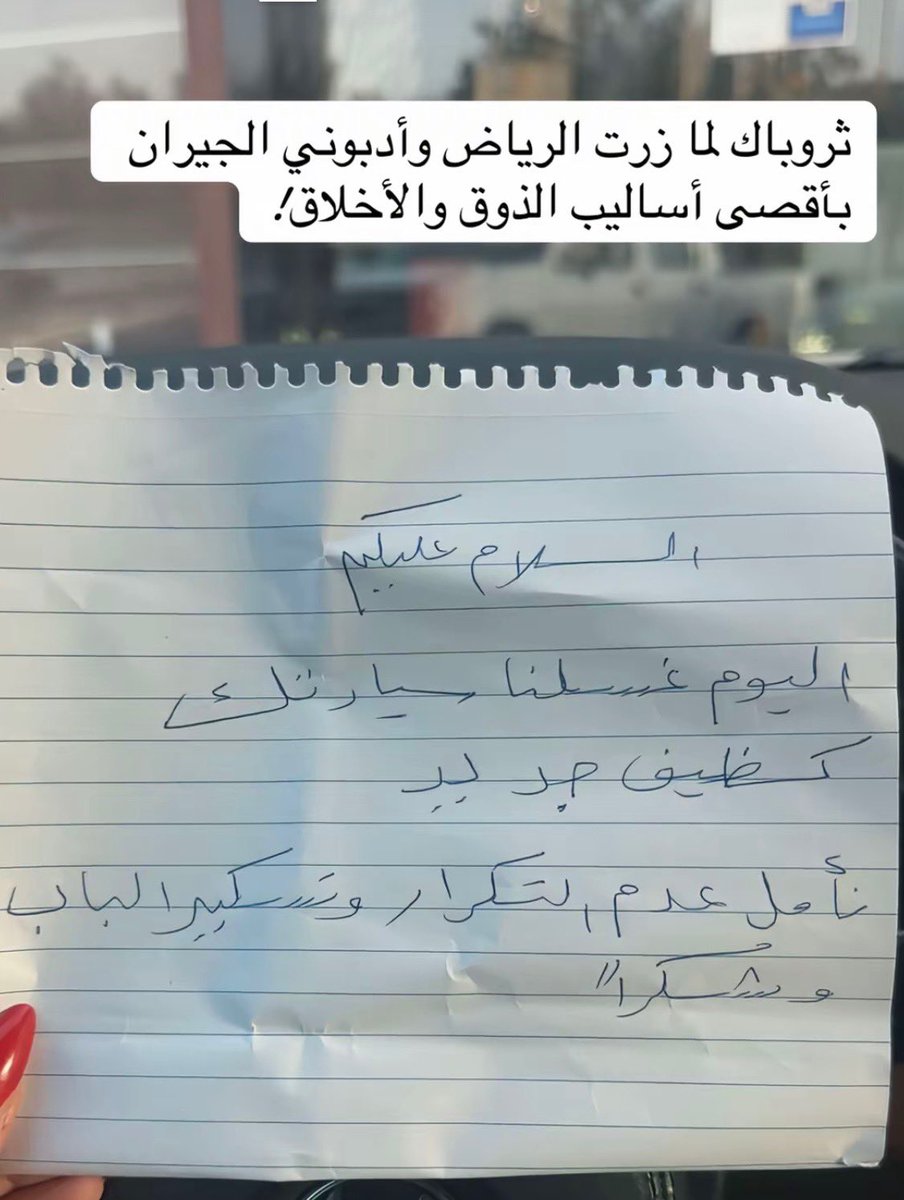 ثروباك لما زرت الرياض وأدبوني الجيران
بأقصى أساليب الذوق والأخلاق!
السلام عليكم
اليوم غسلنا سيارتك
كظيف جديد
نأمل عدم التكرار وتسكير الباب
وشكراً